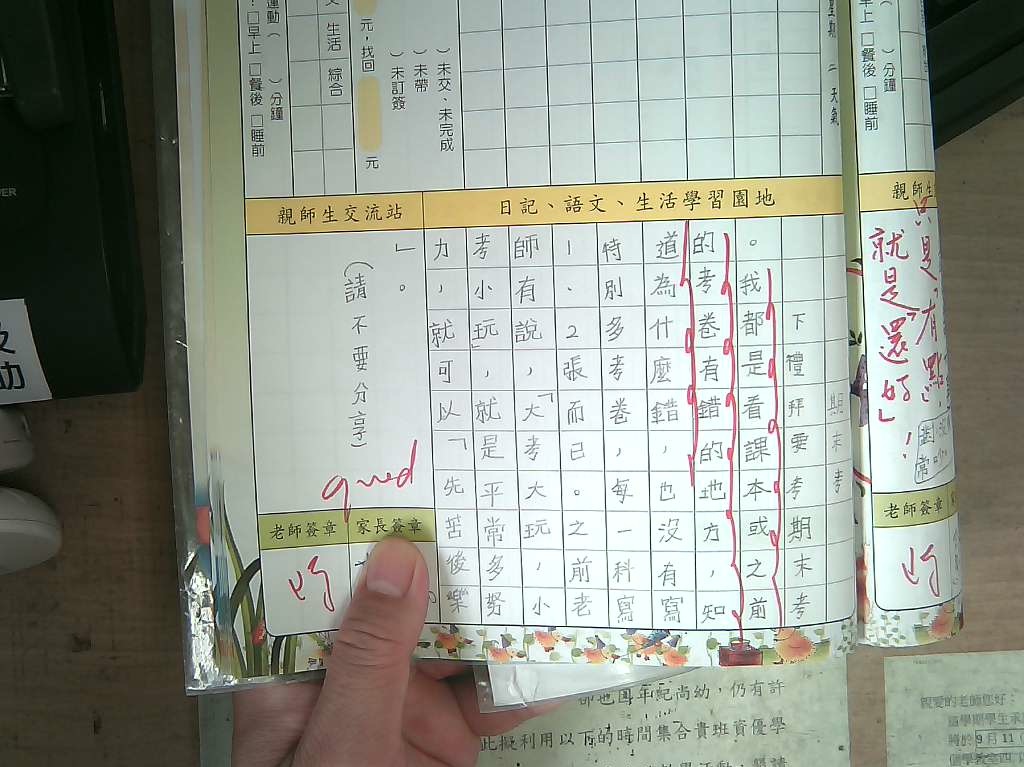 期末考
下禮拜要考期末考
。我都是看課本或之前
的考卷有錯的地方，知
道為什麼錯，也沒有寫
特別多考卷，每一科寫
1、2張而已。之前老
師有說，「大考大玩，小
考小玩」，就是平常多努
力，就可以「先苦後樂
」。
(請不要分享)
good
日記、語文、生活學習園地
親師生交流站
家長簽章
老師簽章
星期二 天氣
)未交、未完成
)未帶
)未訂簽
元，找回
元
生活 綜合
運動( )分鐘
□早上 □餐後 □睡前
早上 □餐後 □睡前
)分鐘
親師生
就是還好」！
是有點
老師簽章
仍有許
此擬利用以下的時間集合貴班資優學
親愛的老師您好：
這學期學生承
將於9月11